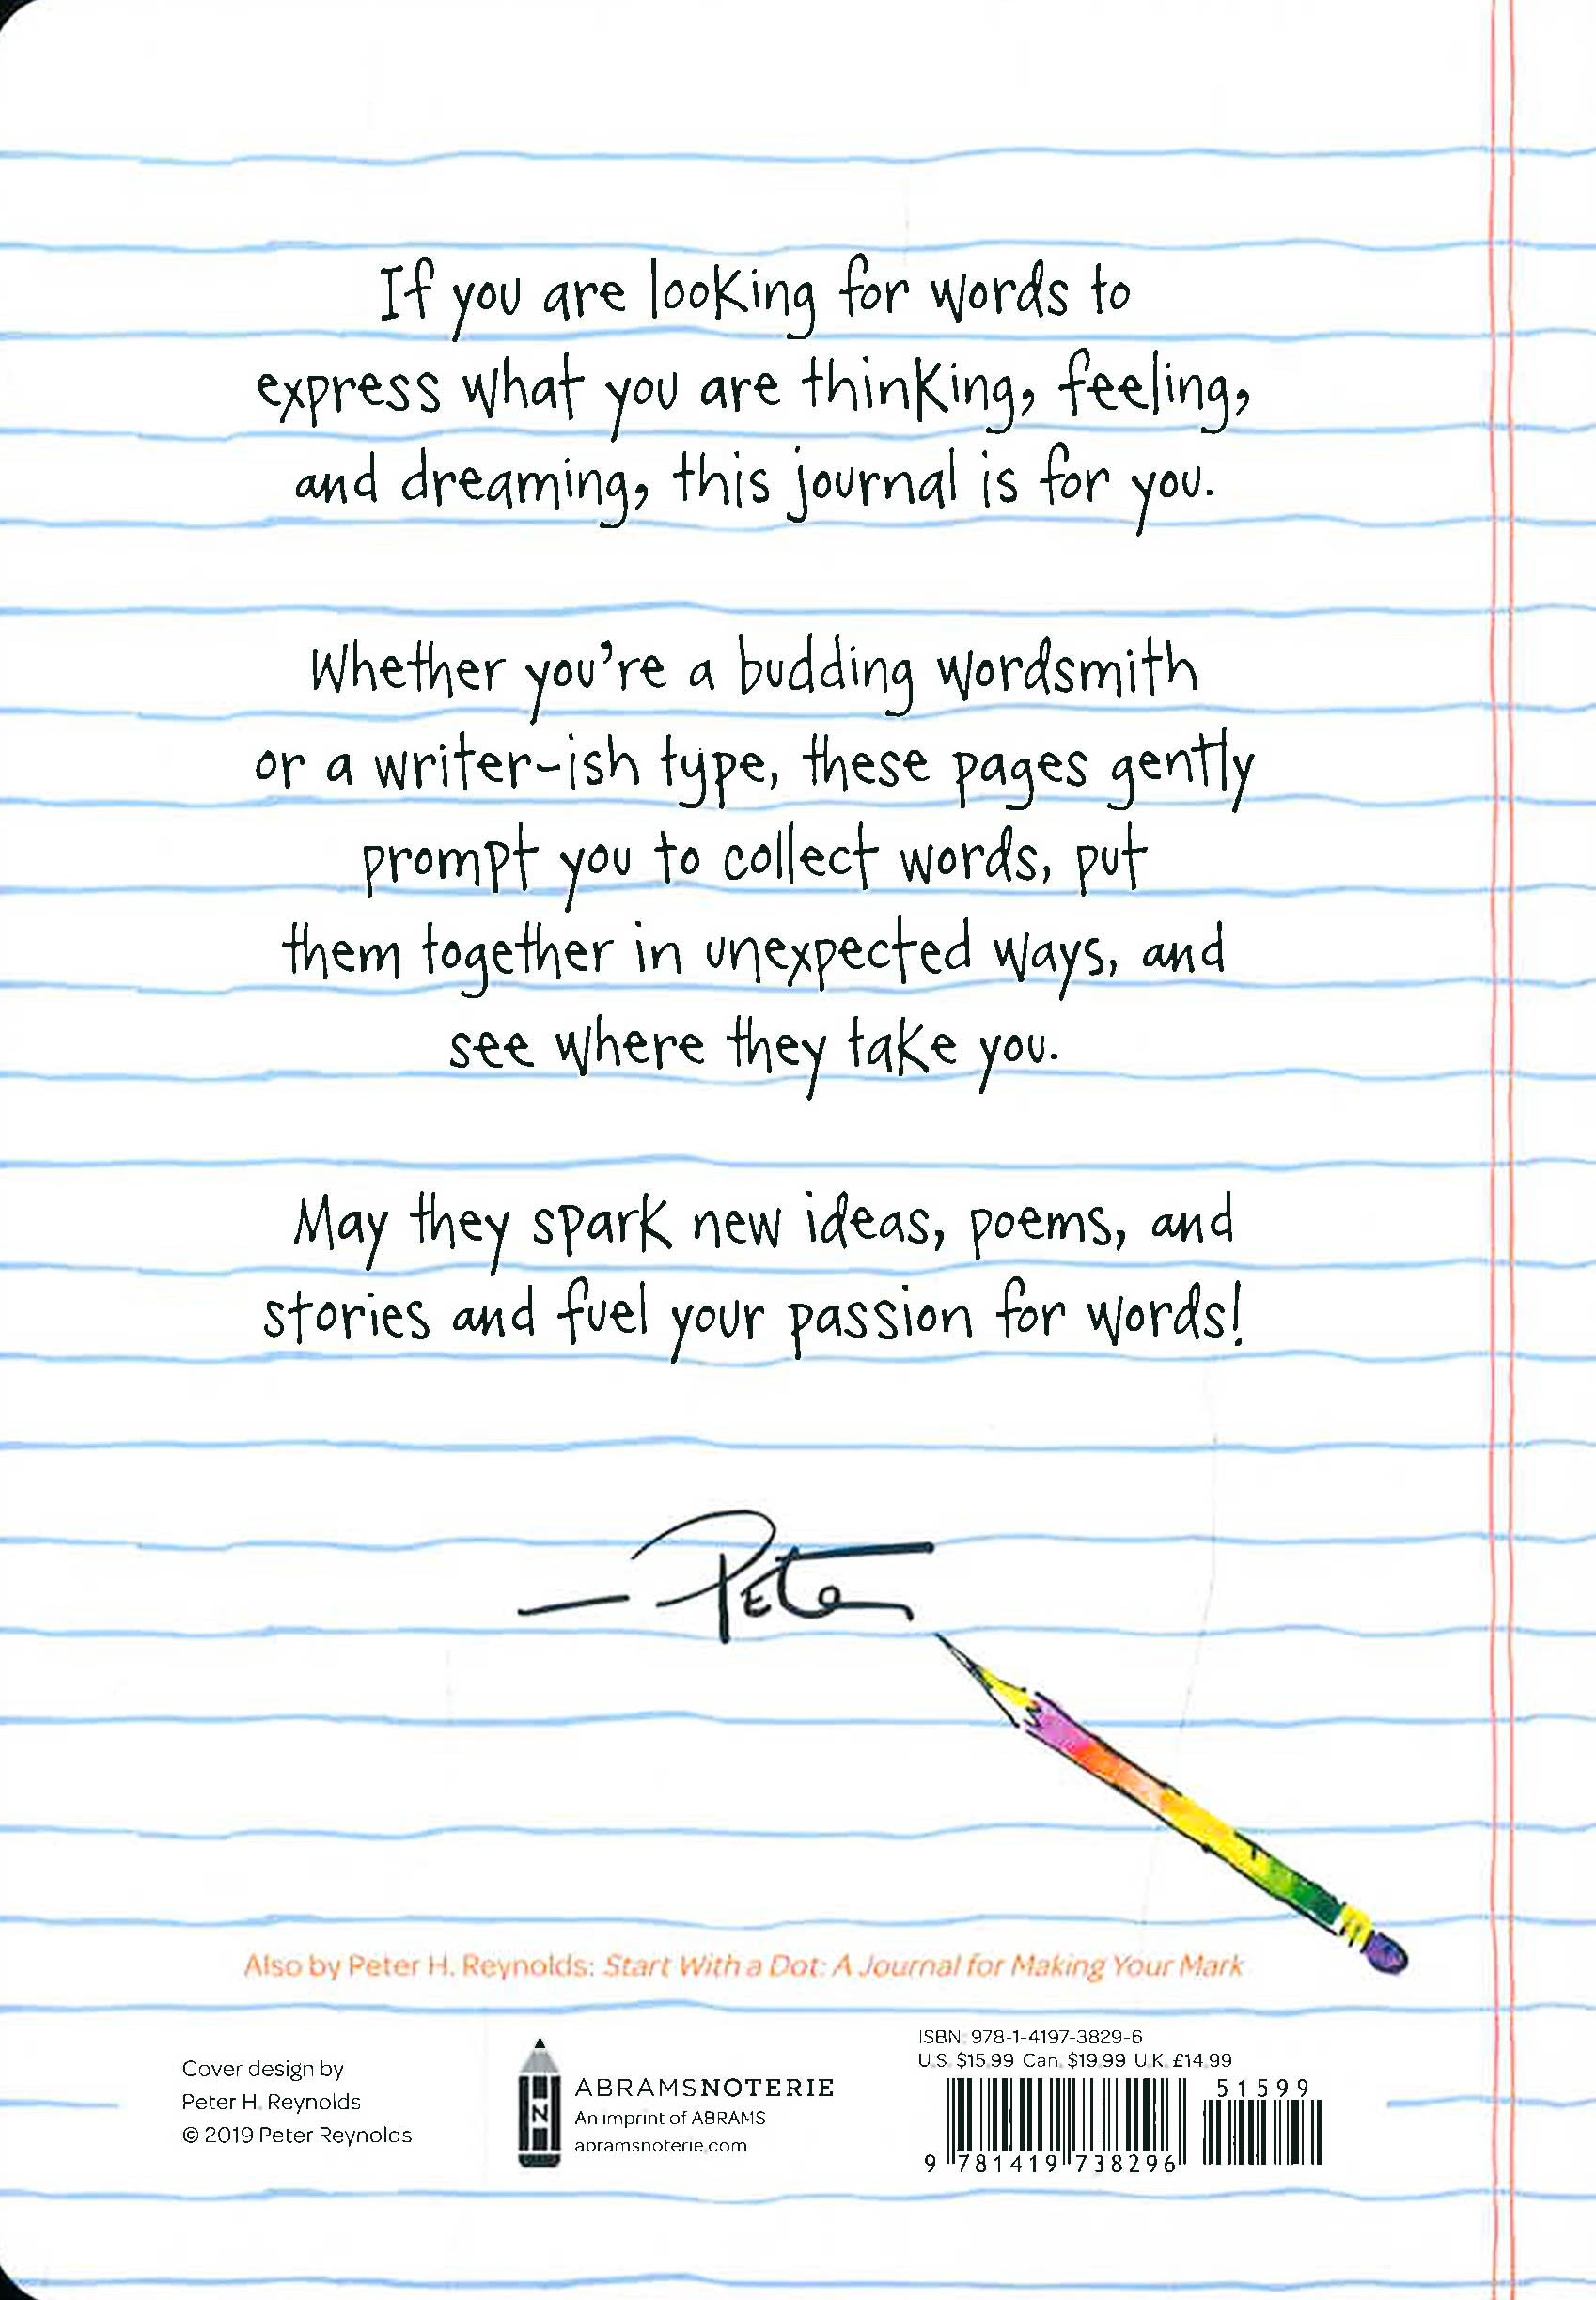 If you are looking for words to
express what you are thinking, feeling,
and dreaming, this journal is for you.
Whether you're a budding wordsmith
or a writer-ish type, these pages gently
prompt you to collect words, put
them together in unexpected ways, and
see where they take you.
May they spark new ideas, poems, and
stories and fuel your passion for words!
— Peter
Also by Peter H. Reynolds: Start With a Dot: A Journal for Making Your Mark
Cover design by
Peter H. Reynolds
© 2019 Peter Reynolds
N
ABRAMSNOTERIE
An imprint of ABRAMS
abramsnoterie.com
ISBN: 978-1-4197-3829-6
U.S. $15.99 Can. $19.99 U.K. £14.99
51599
9 781419 738296